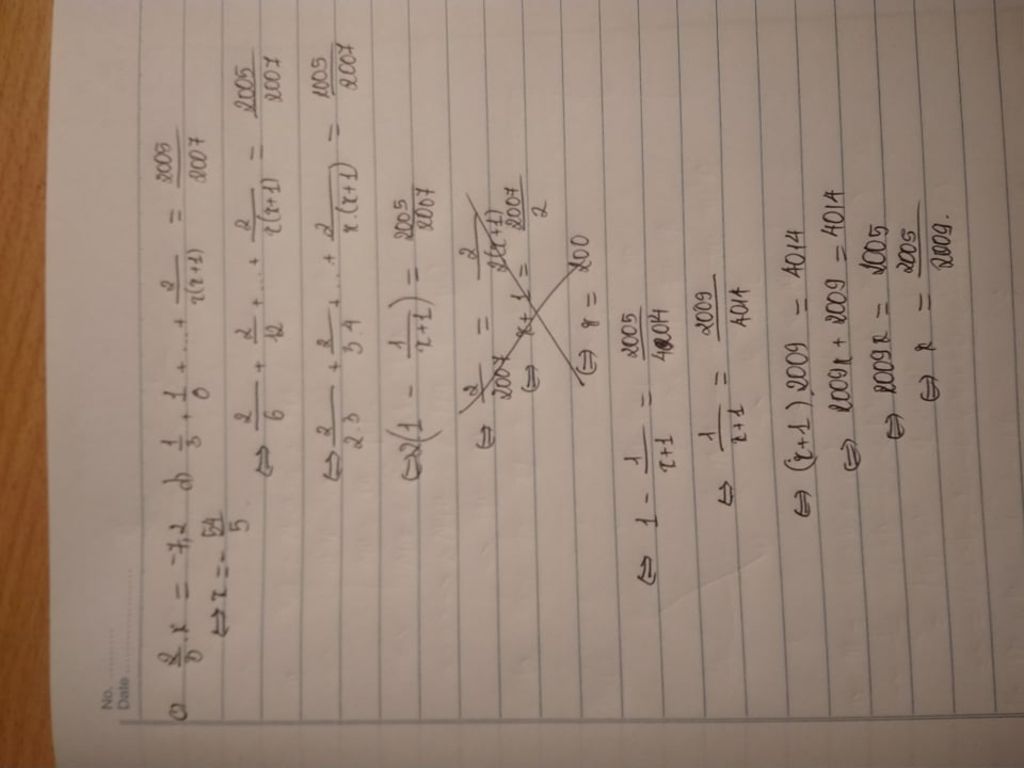 No.
Date
a . x = -7,2 b) 1/3 + 1/6 + ... + 2/x(x+1) = 2005/2007
⇔ x = - /5
⇔ 2/6 + 2/12 + ... + 2/x(x+1) = 2005/2007
⇔ 2/2.3 + 2/3.4 + ... + 2/x.(x+1) = 2005/2007
⇔ 2(1 - 1/x+1) = 2005/2007
⇔ 2/2007 = 2/2(x+1)
⇔ x+1 = 2007/2
⇔ x = 200
⇔ 1 - 1/x+1 = 2005/4014
⇔ 1/x+1 = 2009/4014
⇔ (x+1).2009 = 4014
⇔ 2009x + 2009 = 4014
⇔ 2009x = 2005
⇔ x = 2005/2009.